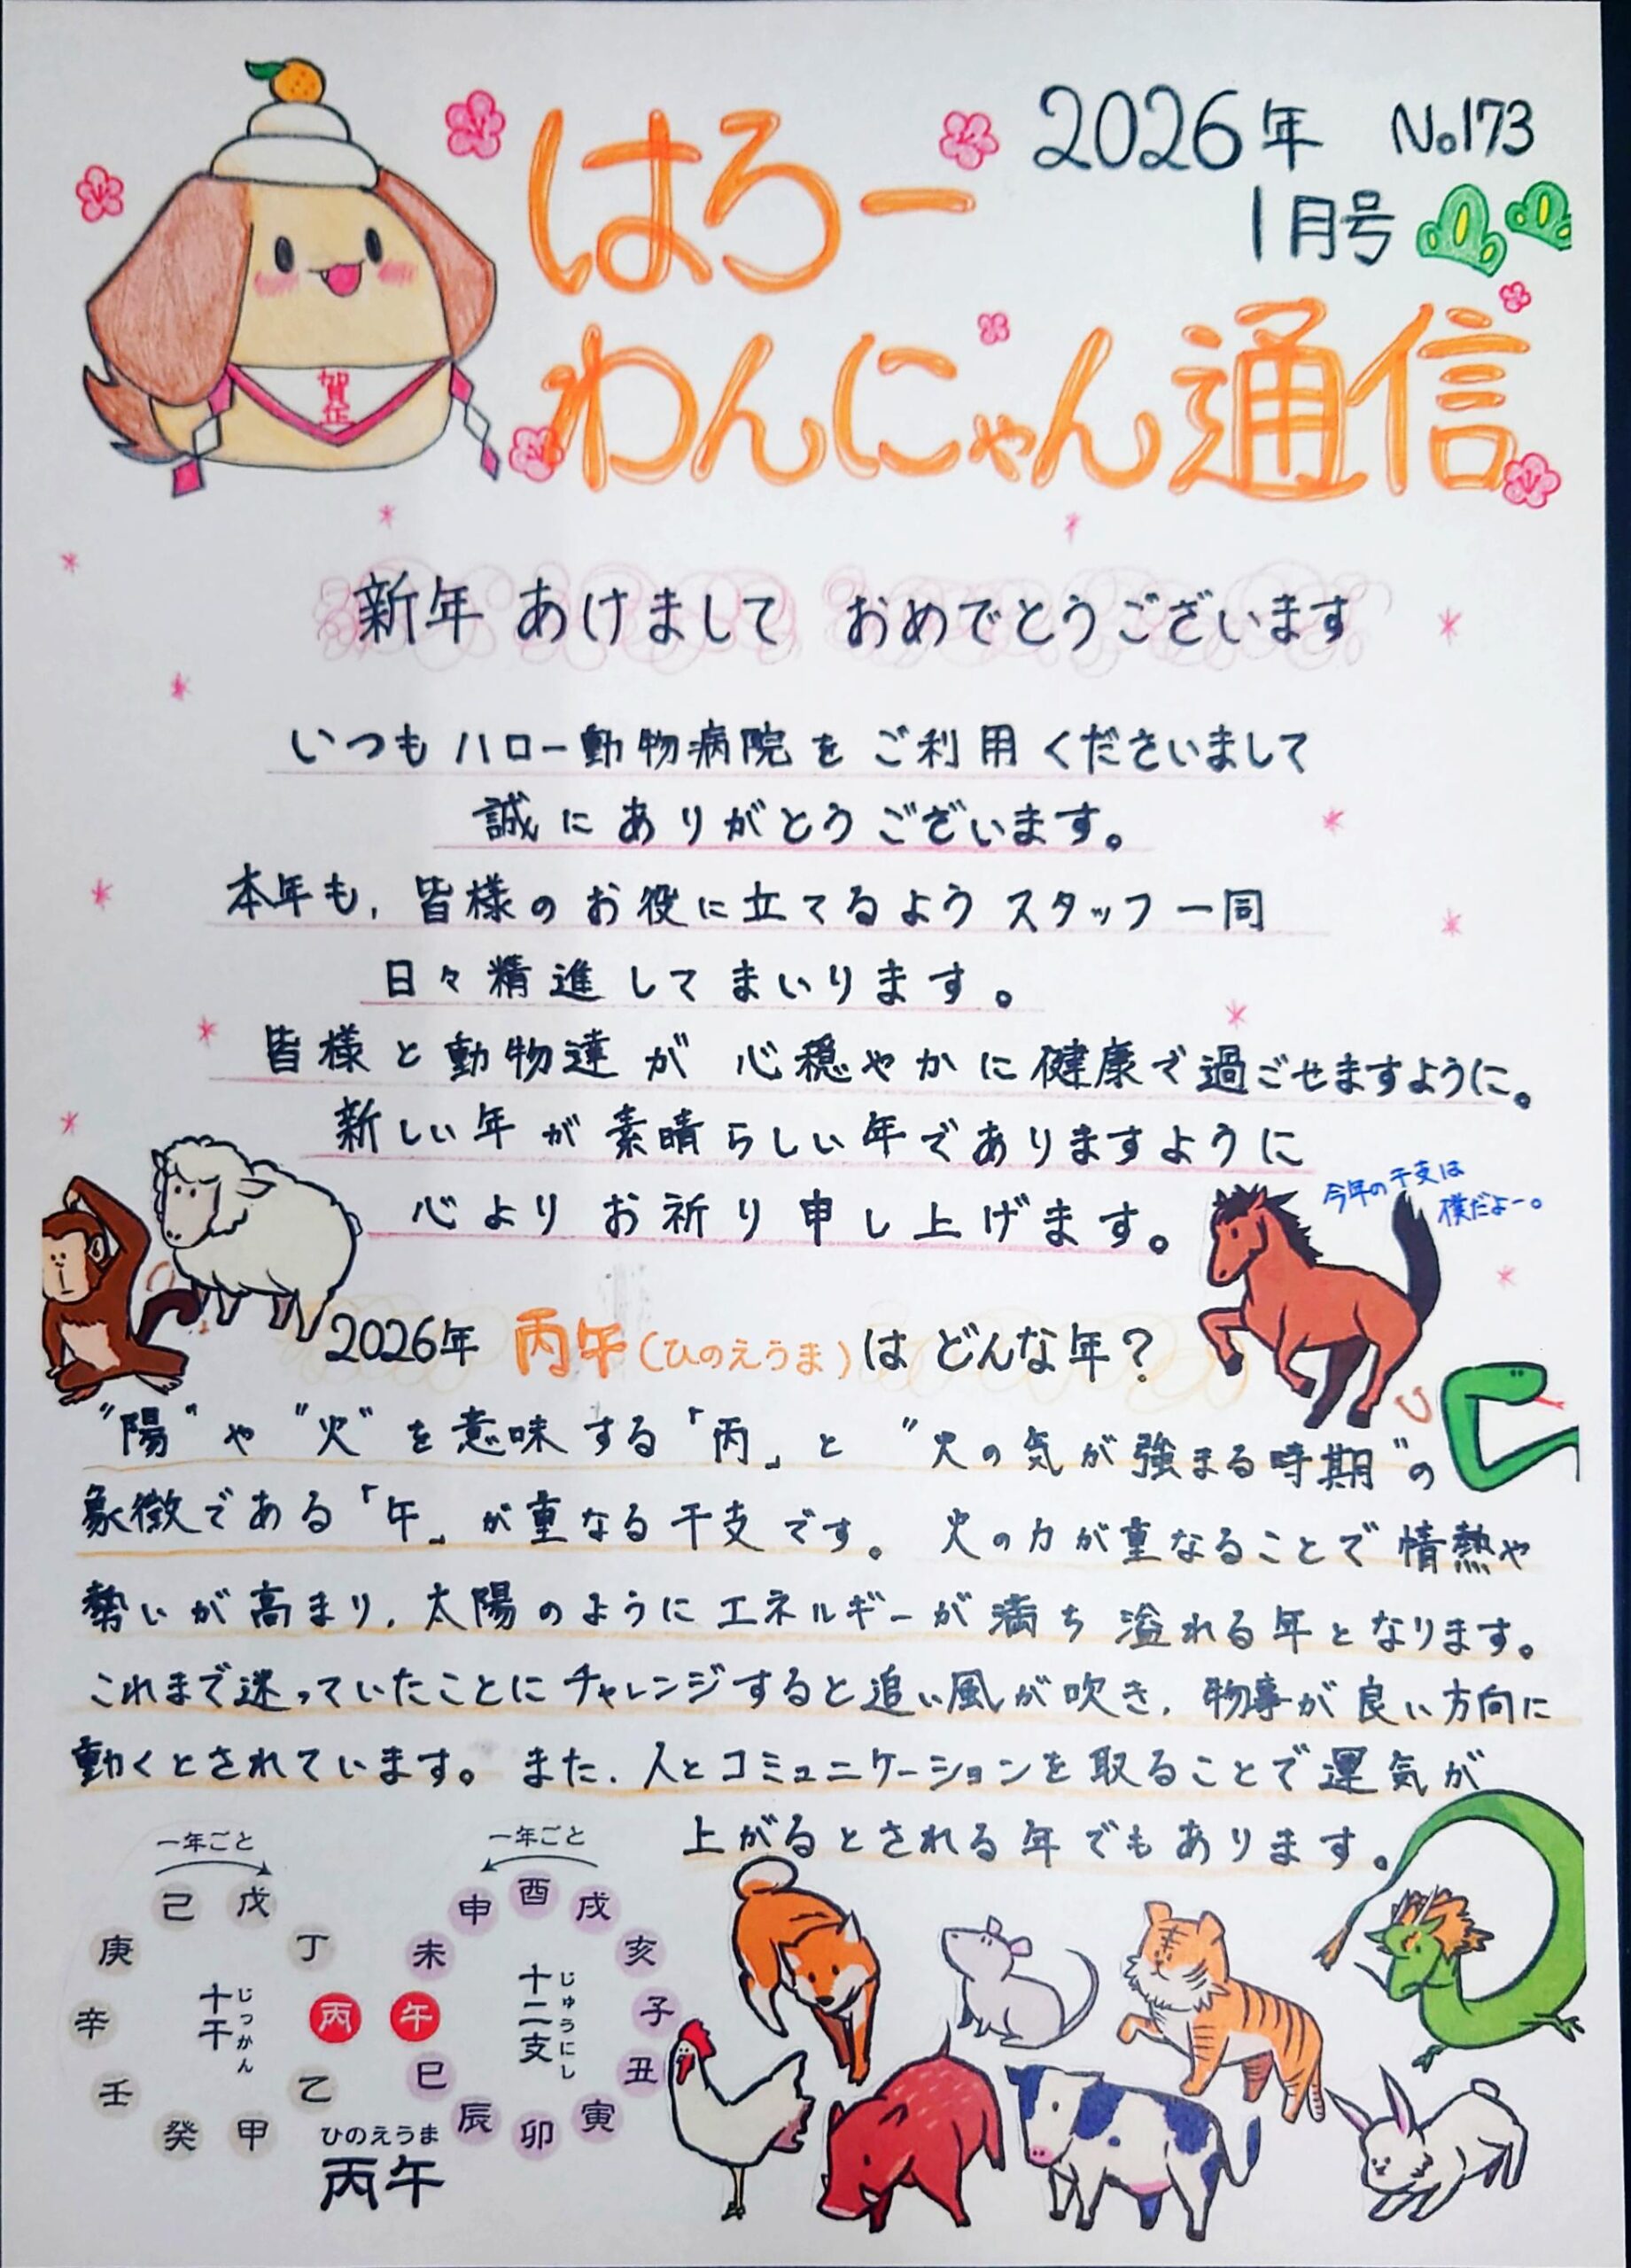 はろー
わんにゃん通信
2026年 No.173
1月号
賀正
新年 あけまして おめでとうございます
いつもハロー動物病院をご利用くださいまして
誠にありがとうございます。
本年も、皆様のお役に立てるようスタッフ一同
日々精進してまいります。
皆様と動物達が心穏やかに健康で過ごせますように。
新しい年が素晴らしい年でありますように
心よりお祈り申し上げます。
今年の干支は
僕だよー。
2026年 丙午(ひのえうま)はどんな年?
"陽"や"火"を意味する「丙」と"火の気が強まる時期"の
象徴である「午」が重なる干支です。火の力が重なることで情熱や
勢いが高まり、太陽のようにエネルギーが満ち溢れる年となります。
これまで迷っていたことにチャレンジすると追い風が吹き、物事が良い方向に
動くとされています。また、人とコミュニケーションを取ることで運気が
上がるとされる年でもあります。
一年ごと
己 戊
庚 丁
辛 丙
壬 乙
癸 甲
十干
じっかん
一年ごと
申 酉 戌
未 亥
午 子
巳 丑
辰 卯 寅
十二支
じゅうにし
ひのえうま
丙午